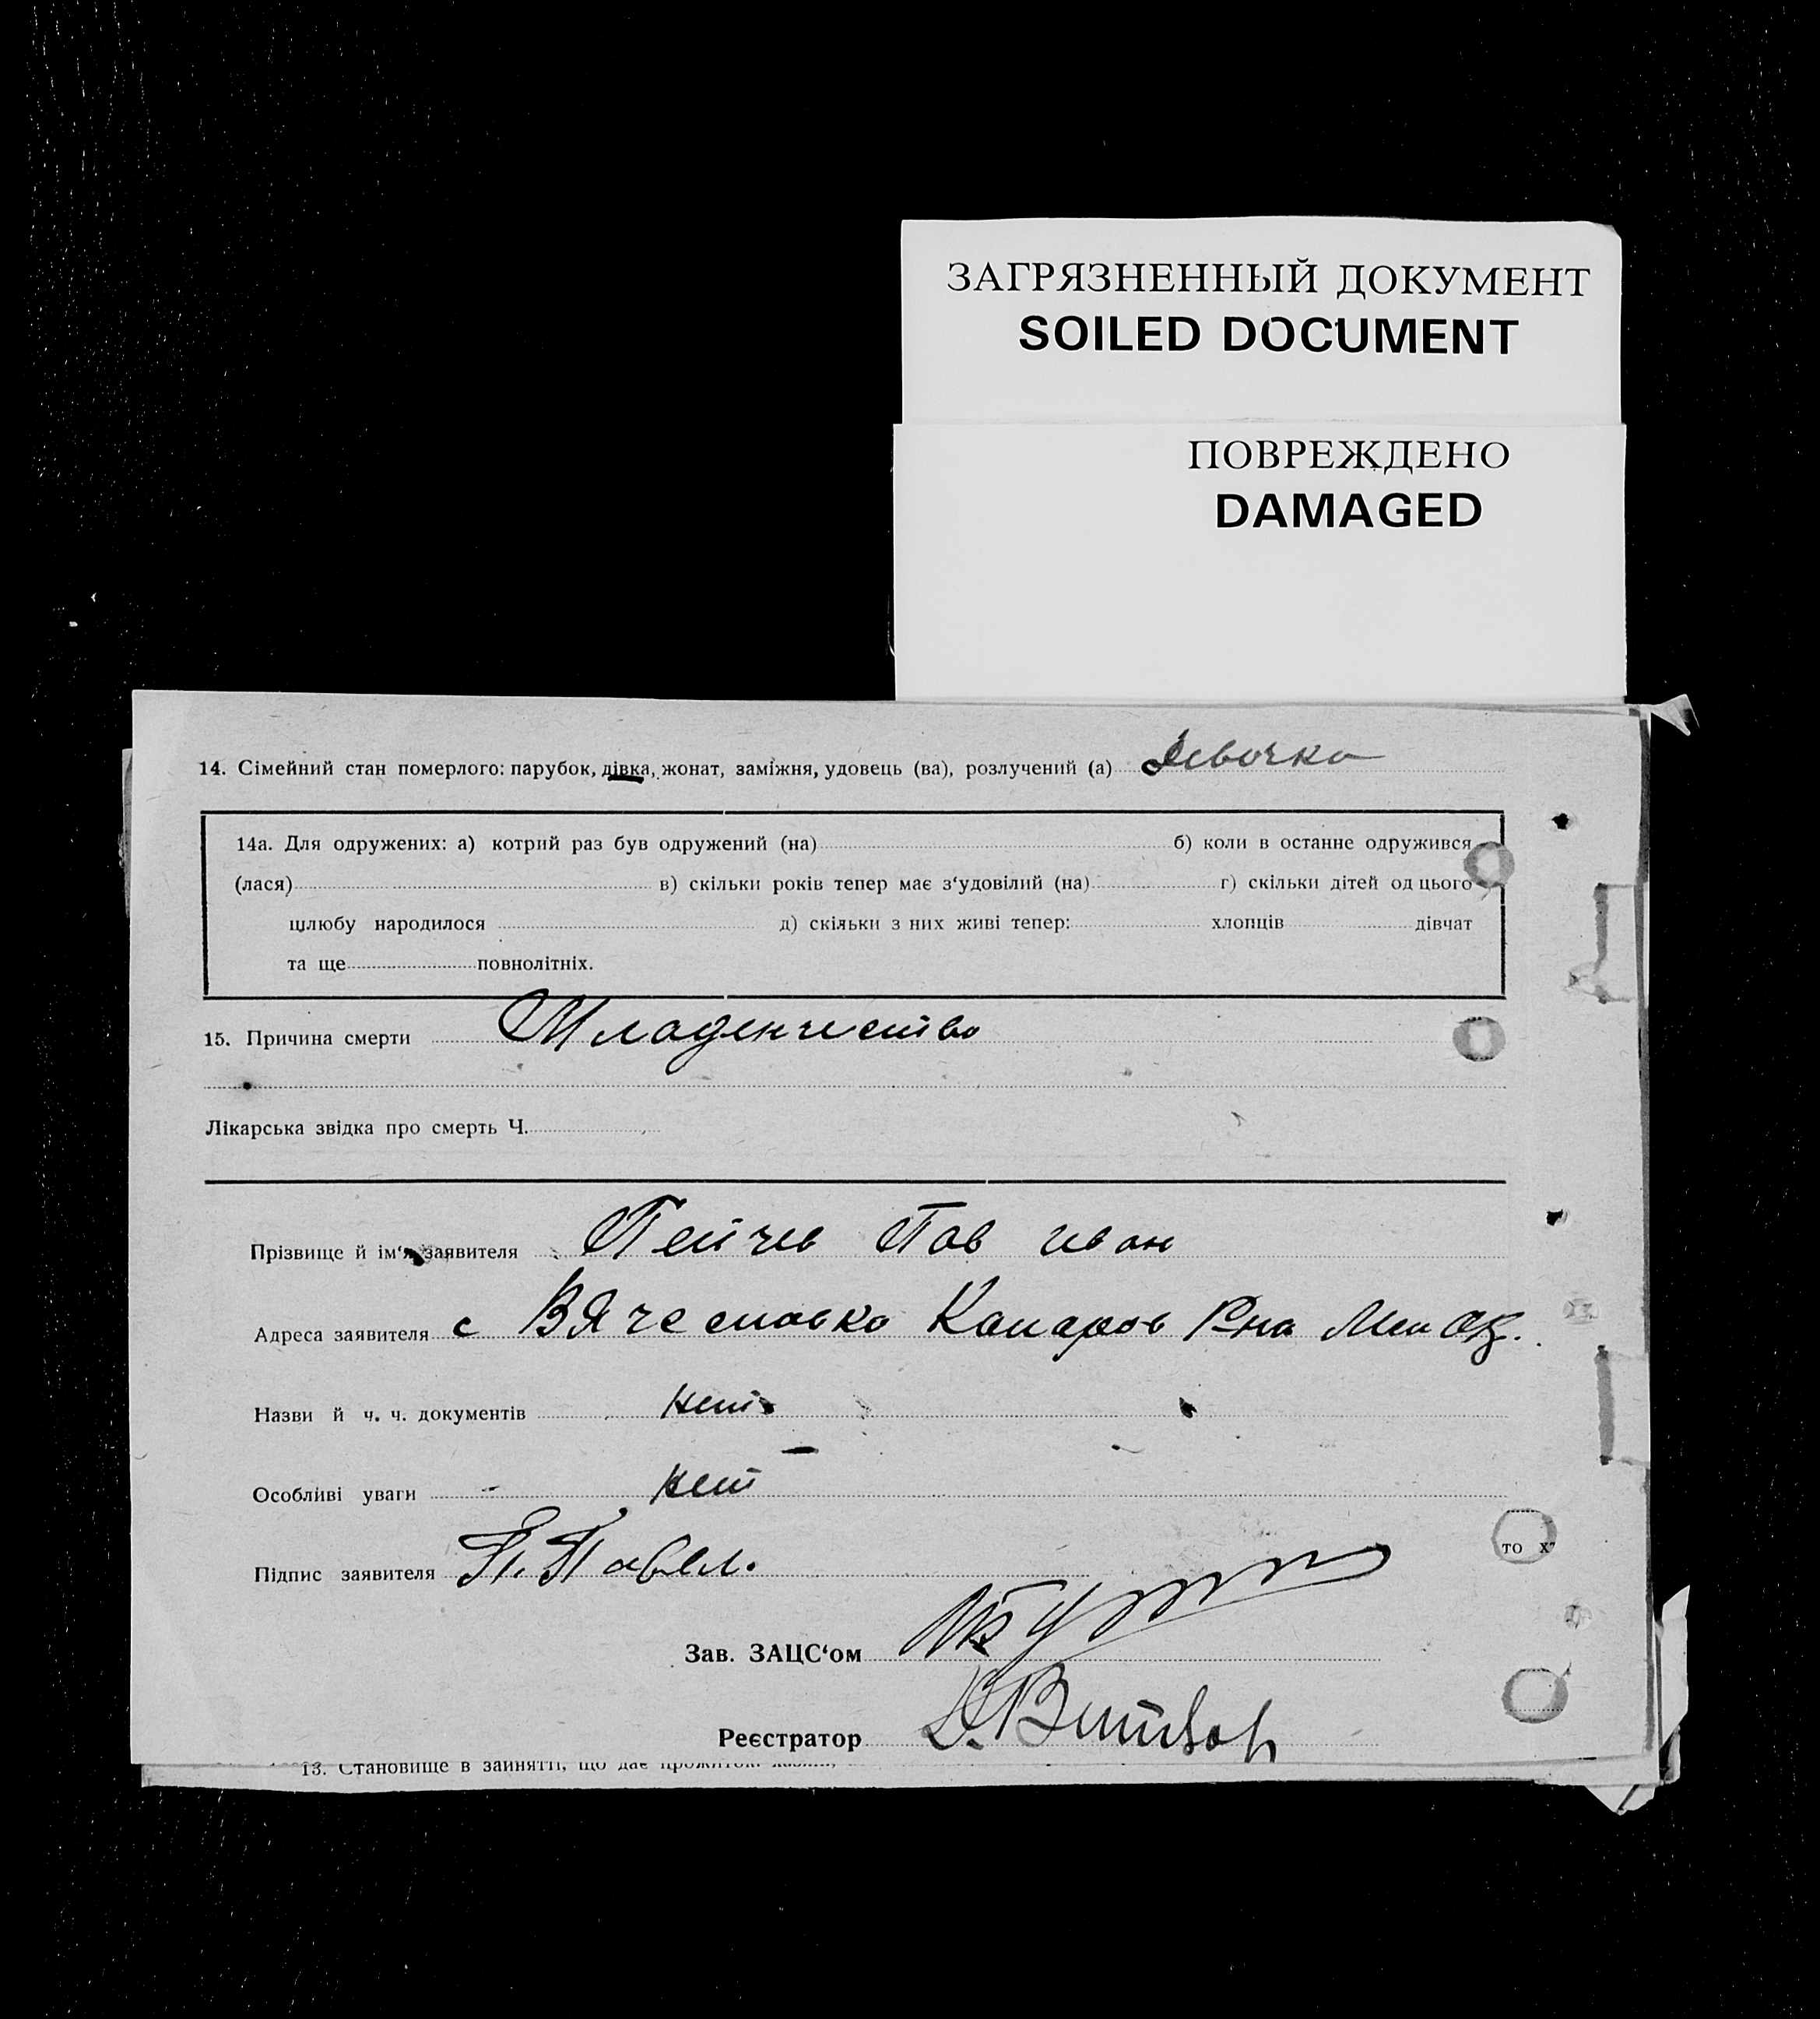 ЗАГРЯЗНЕННЫЙ ДОКУМЕНТ
SOILED DOCUMENT
ПОВРЕЖДЕНО
DAMAGED
14. Сімейний стан померлого: парубок, дівка, жонат, заміжня, удовець (ва), розлучений (а) Девочка
14а. Для одружених: а) котрий раз був одружений (на) б) коли в останнє одружився
(лася) в) скільки років тепер має з‘удовілий (на) г) скільки дітей од цього
шлюбу народилося д) скільки з них живі тепер: хлопців дівчат
та ще повнолітніх.
15. Причина смерти Младенчество
Лікарська звідка про смерть Ч.
Прізвище й ім‘я заявителя Пейчев Пав Иван
Адреса заявителя с Вячеславка Рна
Назви й ч. ч. документів нет
Особливі уваги нет
Підпис заявителя П. Павел.
то
Зав. ЗАЦС‘ом
Реєстратор
13. Становище в занятті, що дає